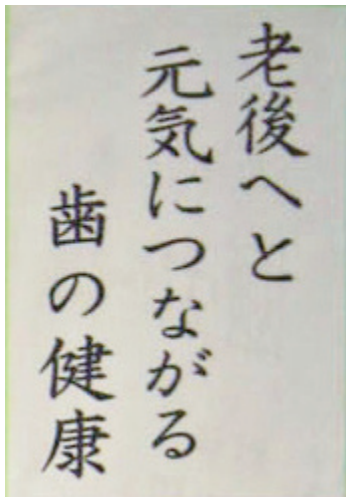 老後へと
元気につながる
歯の健康